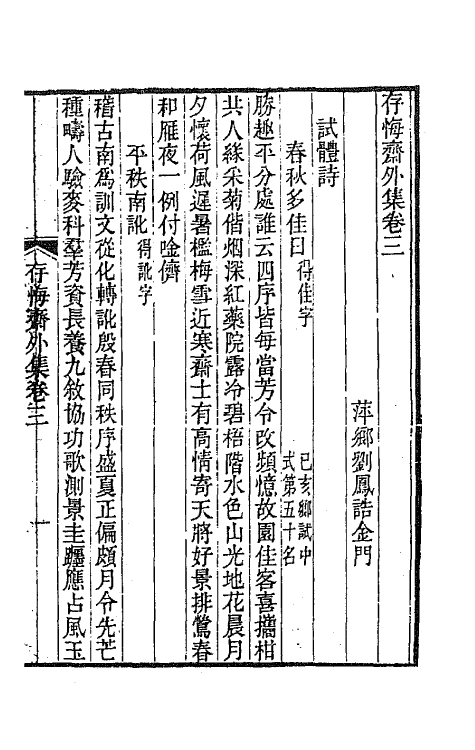 存悔齋外集卷三
萍鄉劉鳳誥金門
試體詩
春秋多佳日得佳字 己亥鄉試中式第五十名
勝趣平分處誰云四序皆每當芳令改頻憶故園佳客喜攜柑
共人緣采菊偕烟深紅藥院露冷碧梧階水色山光地花晨月
夕懷荷風遲暑檻梅雪近寒齋士有高情寄天將好景排鶯春
和雁夜一例付唫儕
平秩南訛得訛字
稽古南爲訓文從化轉訛殷春同秩序盛夏正偏頗月令先芒
種疇人驗麥科羣芳資長養九敘協功歌測景圭躔應占風玉
存悔齋外集卷三
一